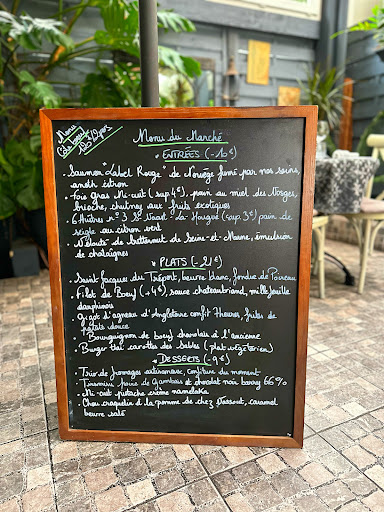 Menu
Côte boeuf
Menu du Marché
* ENTRÉES (-10€)
• Saumon "Label Rouge" de Norvège fumé par nos soins,
aneth citron
• Foie gras Mi-cuit (sup 4€), pain au miel des Vosges,
brioche, chutney aux fruits exotiques
• 6 Huîtres n°3 St Vaast-la Hougue (sup. 3€) pain de
seigle au citron vert
• Velouté de butternut de Seine-et-Marne, émulsion
de chataignes
* PLATS (-21€)
• Saint Jacques du Tréport, beurre blanc, fondue de Poireau
• Filet de Boeuf (+4€), sauce chateaubriand, mille feuille
dauphinois
• Gigot d'agneau d'Angleterre confit 7 heures, frites de
patate douce
• Bourguignon de boeuf charolais à l'ancienne
• Burger thaï carottes des Sables (plat végétarien)
* DESSERTS (-9€)
• Trio de fromages artisanaux, confiture du moment
• Tiramisu poire de Gambais et chocolat noir barry 66%
• Mi-cuit pistache crème namelaka
• Chou craquelin à la pomme de chez Vassout, caramel
beurre salé